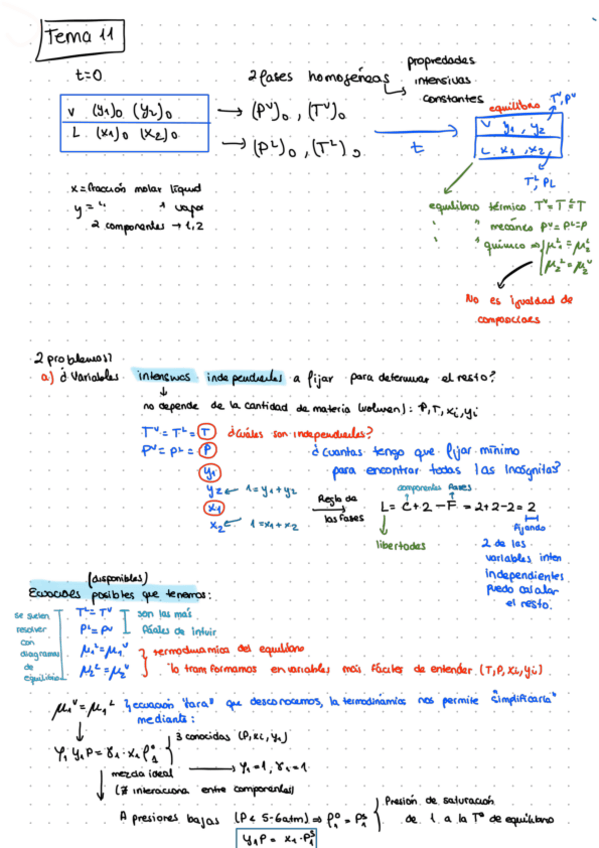 Tema 11
t=0
2 fases homogéneas → propiedades intensivas constantes
V (y1)0 (y2)0 → (P^V)0, (T^V)0
L (x1)0 (x2)0 → (P^L)0, (T^L)0
t
equilibrio
T^V, P^V
V y1, y2
L x1, x2
T^L, PL
x = fracción molar líquid
y = " " vapor
2 componentes → 1,2
equilibrio térmico T^V = T^L = T
" " mecánico P^V = P^L = P
" " químico ⇒
No es igualdad de
composiciones
2 problemas?
a) ¿Variables intensivas independientes a fijar para determinar el resto?
no depende de la cantidad de materia (volumen): P, T, xi, yi
T^V = T^L = T ¿Cuáles son independientes?
P^V = P^L = P
y1
y2 ← 1 = y1 + y2
x1
x2 ← 1 = x1 + x2
¿Cuantas tengo que fijar mínimo
para encontrar todas las incógnitas?
Regla de
las fases
componentes fases
L = C + 2 - F = 2 + 2 - 2 = 2
libertades
Fijando
2 de las
variables inten
independientes
puedo calcular
el resto.
(disponibles)
Ecuaciones posibles que tenemos:
se suelen
resolver
con
diagramas
de
equilibrio
T^L = T^V
P^L = P^V
son las más
fáciles de intuir
μ1^L = μ1^V
μ2^L = μ2^V
termodinámica del equilibrio
lo transformamos en variables más fáciles de entender (T, P, xi, yi)
μ1^V = μ1^L } ecuación "rara" que desconocemos, la termodinámica nos permite "simplificarla"
mediante:
φ1 y1 P = γ1 · x1 P1^0
3 conocidas (P, xi, yi)
mezcla ideal
(∄ interacciona entre componentes)
→ φ1 = 1, γ1 = 1
A presiones bajas (P < 5-6 atm) ⇒ P1^0 = P1^s
Presión de saturación
de 1 a la Tª de equilibrio
y1 P = x1 · P1^s